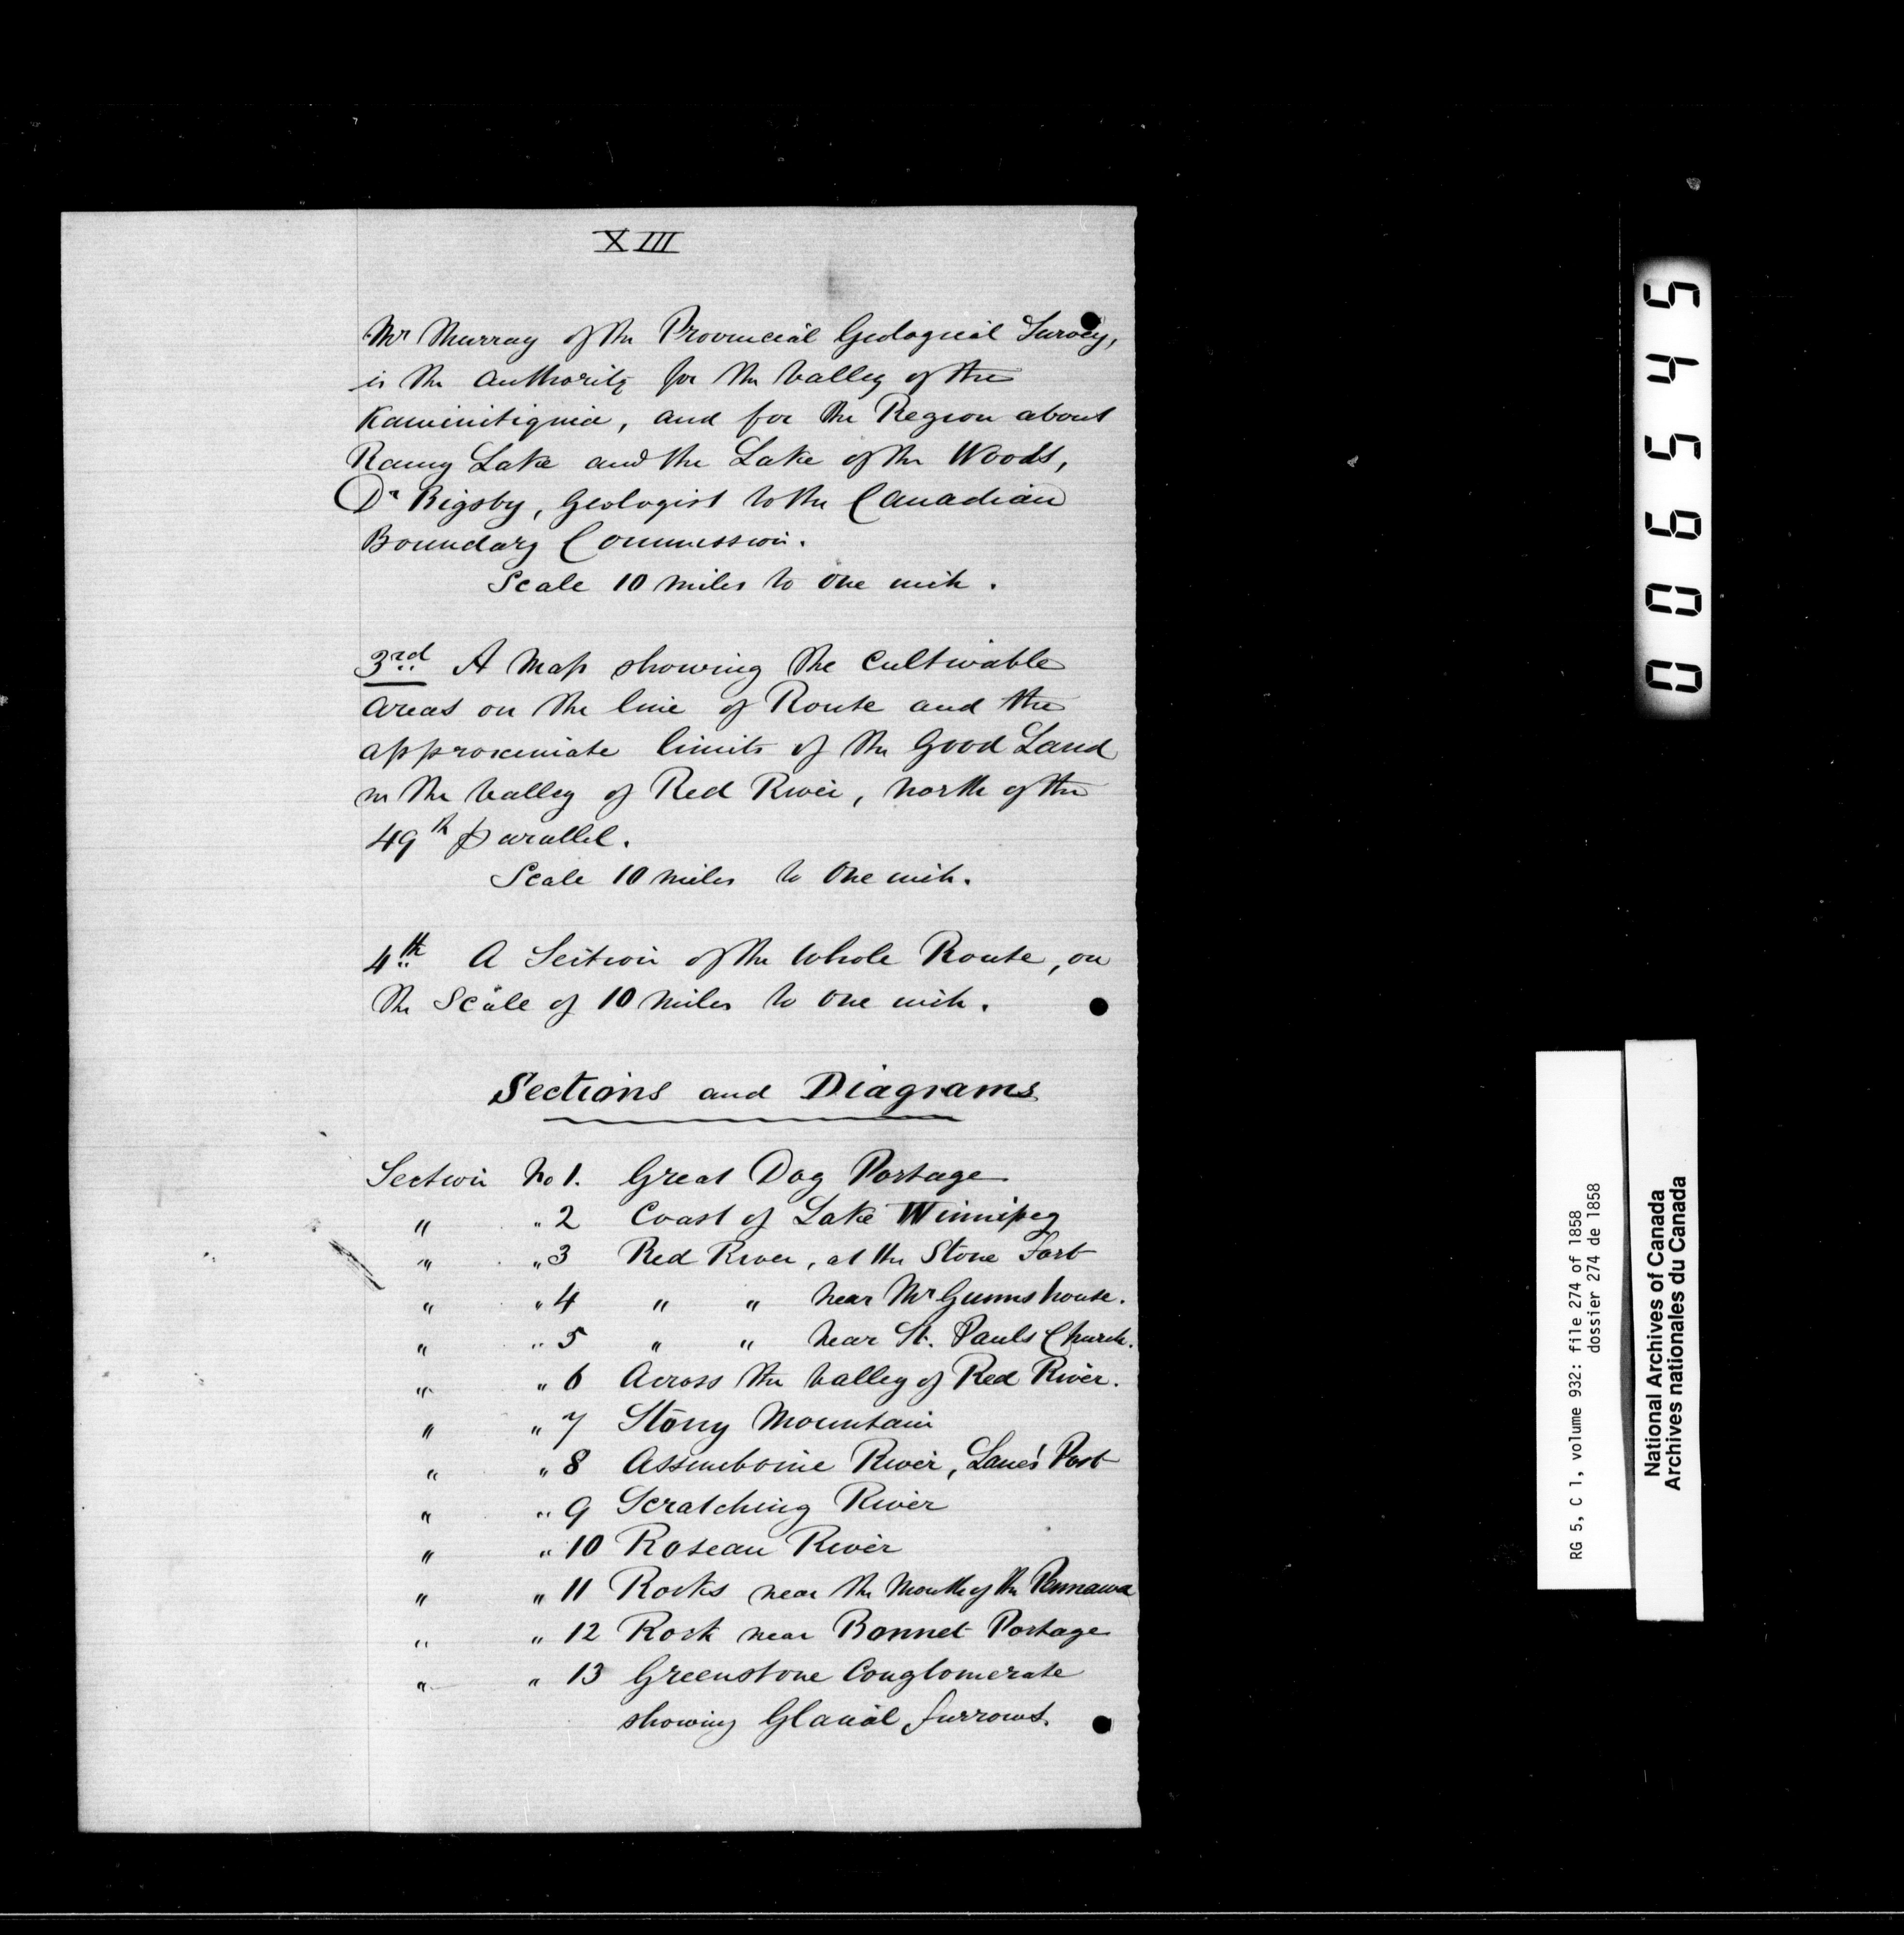 XIII
Mr Murray of the Provincial Geological Survey,
is the authority for the valley of the
Kaministiquia, and for the Region about
Rainy Lake and the Lake of the Woods,
Dr Bigsby, Geologist to the Canadian
Boundary Commission.
Scale 10 miles to one inch.
3rd A map showing the cultivable
areas on the line of Route and the
approximate limits of the Good Land
in the valley of Red River, north of the
49th parallel.
Scale 10 miles to one inch.
4th A Section of the whole Route, on
the Scale of 10 miles to one inch.
Sections and Diagrams
Section No 1. Great Dog Portage
" " 2 Coast of Lake Winnipeg
" " 3 Red River, at the Stone Fort
" " 4 " " near Mr Gunns house.
" " 5 " " near St. Pauls Church.
" " 6 Across the valley of Red River.
" " 7 Stony Mountain
" " 8 Assiniboine River, Lane's Post
" " 9 Scratching River
" " 10 Roseau River
" " 11 Rocks near the Mouth of the Pennawa
" " 12 Rock near Bonnet Portage
" " 13 Greenstone Conglomerate
showing Glacial furrows.
006545
RG 5, C 1, volume 932: file 274 of 1858
dossier 274 de 1858
National Archives of Canada
Archives nationales du Canada